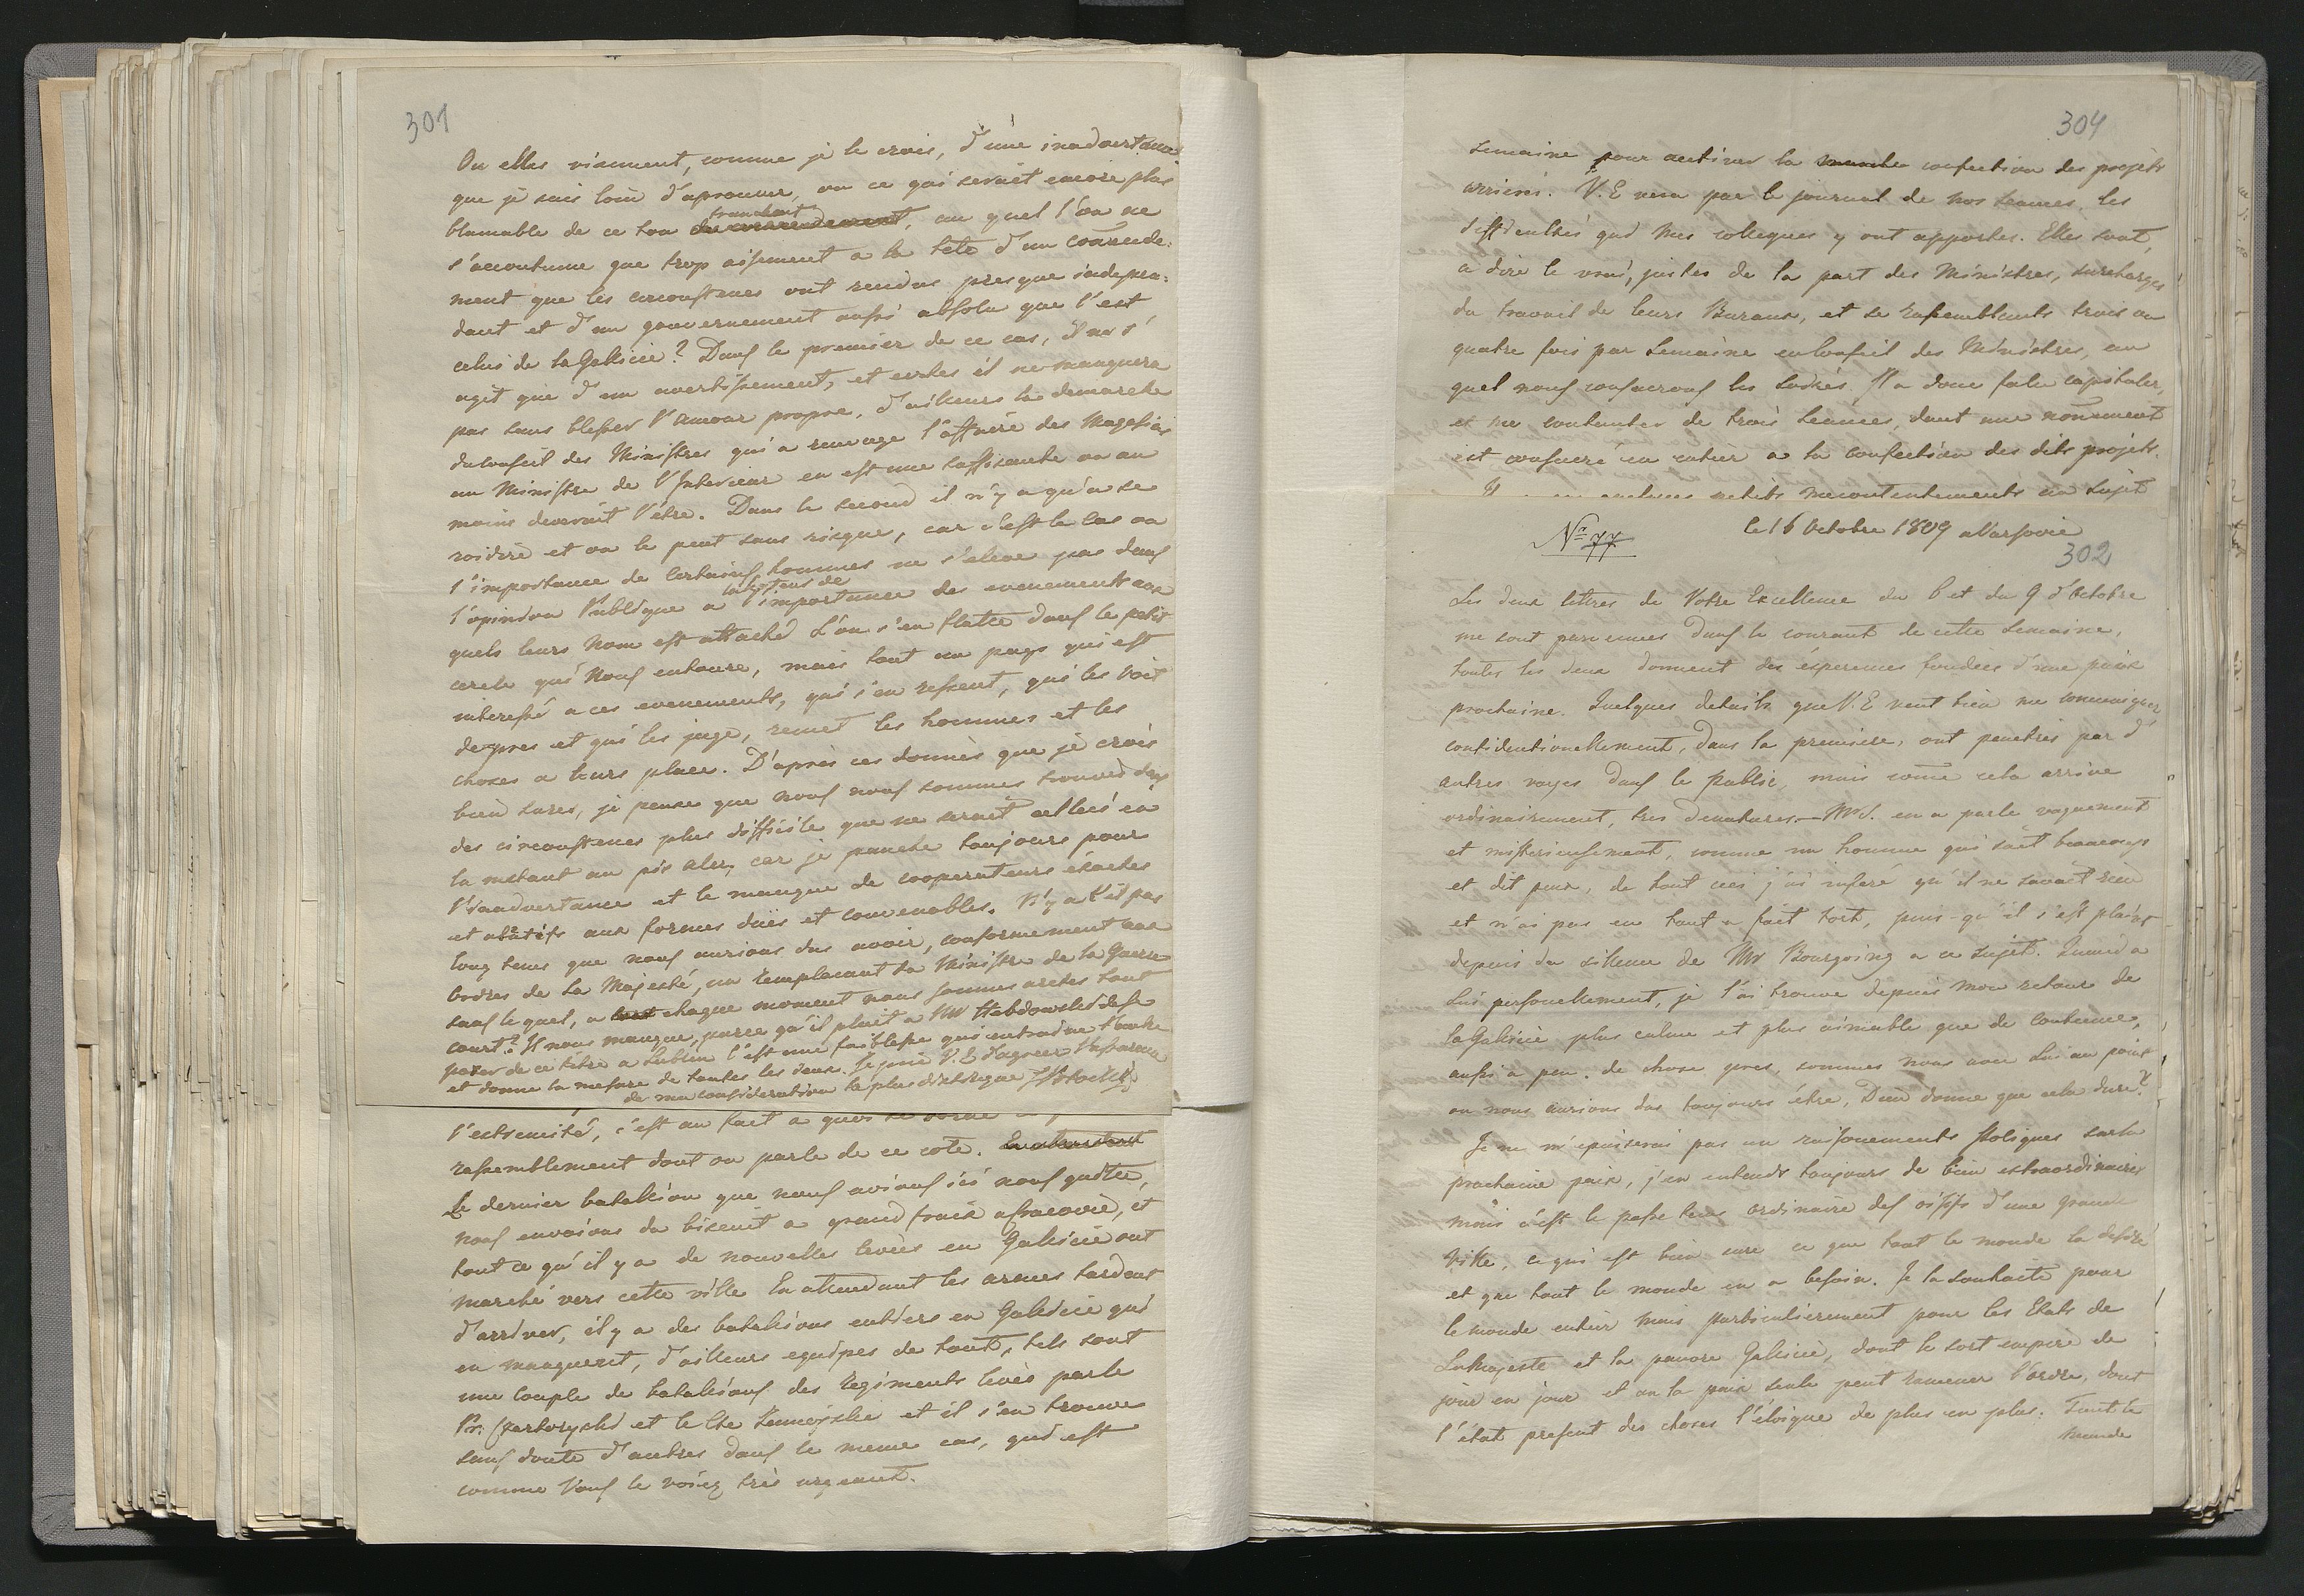 301
Ou elles viennent, comme je le crois, d'une inadvertance
que je suis loin d'aprouver, ou ce qui serait encore plus
blamable de ce ton tranchant, au quel l'on ne
s'accoutume que trop aisement a la tête d'un com̄ende-
ment que les circonstances ont rendus presque indepen-
dant et d'un gouvernement aussi absolu que l'est
celui de la Galicie? Dans le premier de ce cas, il ne s'
agit que d'un avertissement, et certes il ne manquera
pas sans blesser l'amour propre, d'ailleurs la demarche
du Conseil des Ministres qui a renvoyé l'affaire des Magasins
au Ministre de l'Interieur en est une suffisante ou au
moins devrait l'être. Dans le second il n'y a qu'a se
roidire et on le peut sans risque, car c'est le cas ou
l'importance de certains hommes ne s'aleve pas dans
l'opinion Publique a la hauteur de l'importance des evenements aux
quels leurs nom est attaché L'on s'en flatte dans le petit
cercle qui nous entoure, mais tout un pays qui est
interessé a ces evenements, qui s'en ressent, qui les voit
de pres et qui les juge, remet les hommes et les
choses a leurs place. D'aprés ces donnés que je crois
bien sures, je pense que nous nous sommes trouvés dans
des circonstances plus difficile que ne serait celleci en
la mettant au pis aler, car je panche toujours pour
l'inadvertance et le manque de cooperateurs éxactes
et abitués aux formes dues et convenables. N'y a t'il pas
long tems que nous aurions dus avoir, conformement aux
Ordres de Sa Majesté, un remplacant du Ministre de la Guerre
sans le quel, a chaque moment nous sommes aretes tout
court? Il nous manque, parce qu'il plait a Mr Hebdowski de se
parer de ce titre a Lublin c'est une faiblesse qui entraine l'autre
et donne la mesure de toutes les deux. Je prie V. E d'agreer l'assurance
de ma consideration la plus distinguée
l'extremité, c'est au fait a quoi se borne
rassemblement dont on parle de ce coté. En attendant
Le dernier batallion que nous avions ici nous quitte,
nous envoions du biscuit a grand frais a Cracovie, et
tout ce qu'il y a de nouvelles levées en Galicie ont
marché vers cette ville En attendant les armes tardent
d'arriver, il y a des batallions entiers en Galicie qui
en manquent, d'ailleurs equipés de tout, tels sont
une couple de batallions des Regiments levés par le
Pr: Czartoryski et le Cte Zamoyski et il s'en trouve
sans doute d'autres dans le meme cas, qui est
comme Vous le voiez très urgeant.
304
semaine pour activer la confection des projets
arrierés. V. E verra par le journal de nos seances les
difficultés que mes collegues y ont apportés. Elles sont,
a dire le vrai, justes de la part des Ministres, surchargés
du travail de leurs Buraux, et se rassemblants trois ou
quatre fois par semaine en Conseil des Ministres, au
quel nous consacrons les soirées. Il a donc falu capituler,
et me contenter de trois seances, dont une nom̄ement
est consacré en entier a la confection des dits projets.
Il quelques petits mecontentements au sujet
Nr 77
le 16 Octobre 1809 a Varsovie
302
Les deux lettres de Votre Excellence du 6 et du 9 d'Octobre
me sont parvenues dans le courant de cette semaine,
toutes les deux donnent des ésperences fondées d'une paix
prochaine. Quelques details que V. E veut bien me comuniquer
confidentionellement, dans la premiere, ont penetrés par d'
autres voyes dans le public, mais com̄e cela arrive
ordinairement, tres denatures — Mr S. en a parlé vaguement
et misterieusement, comme un homme qui sait beaucoup
et dit peux, de tout ceci j'ai inferé qu'il ne savait rien
et n'ai pas eu tout a fait tort, puis-qu'il s'est plaint
depuis du silence de Mr Bourgoing a ce sujet. Quand a
Lui personellement, je l'ai trouvé depuis mon retour de
la Galicie plus calme et plus aimable que de coutume,
aussi a peu de chose pres, sommes nous avec Lui au point
ou nous aurions dus toujours être, Dieu donne que cela dure!
Je ne m'epuiserai pas en raisonements politiques sur la
prochaine paix, j'en entends toujours de bien extraordinaires
mais c'est le passe tems ordinaire des oisifs d'une grande
Ville, ce qui est bien sure ce que tout le monde la desire
et que tout le monde en a besoin. Je la souhaite pour
le monde entier mais particulierement pour les Etats de
Sa Majesté et la pauvre Galicie, dont le sort empire de
jour en jour et ou la paix seule peut ramener l'ordre, dont
l'état present des choses l'éloigne de plus en plus. Tout le
monde